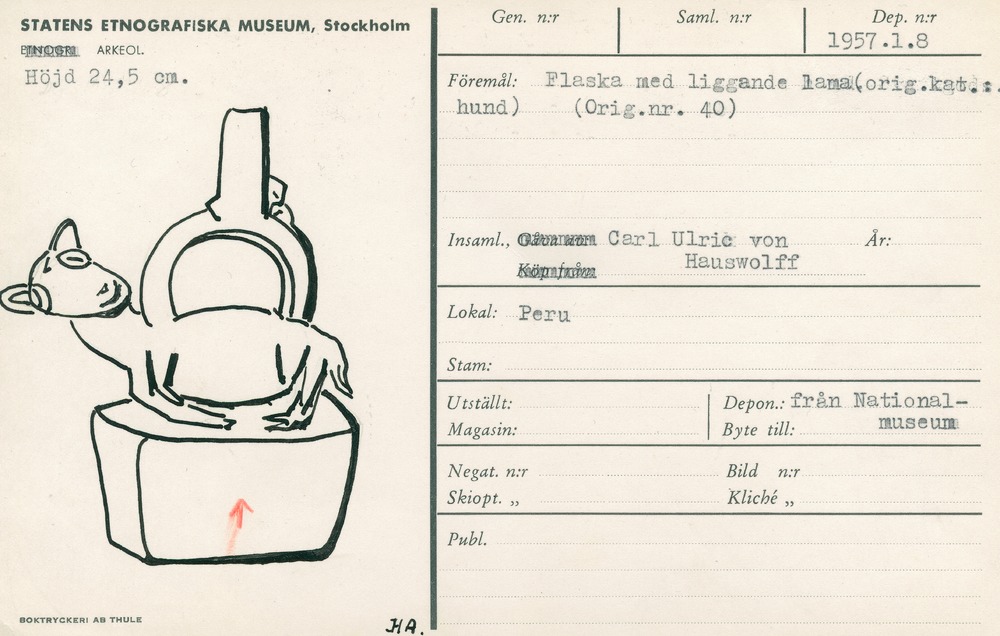 STATENS ETNOGRAFISKA MUSEUM, Stockholm
ETNOGR. ARKEOL.
Höjd 24,5 cm.
Gen. n:r
Saml. n:r
Dep. n:r
1957.1.8
Föremål: Flaska med liggande lama(orig.kat.:
hund) (Orig.nr. 40)
Insaml., Gåva av: Carl Ulric von År:
Köp från: Hauswolff
Lokal: Peru
Stam:
Utställt:
Magasin:
Depon.: från National-
Byte till: museum
Negat. n:r
Bild n:r
Skiopt. „
Kliché „
Publ.
BOKTRYCKERI AB THULE
HA.